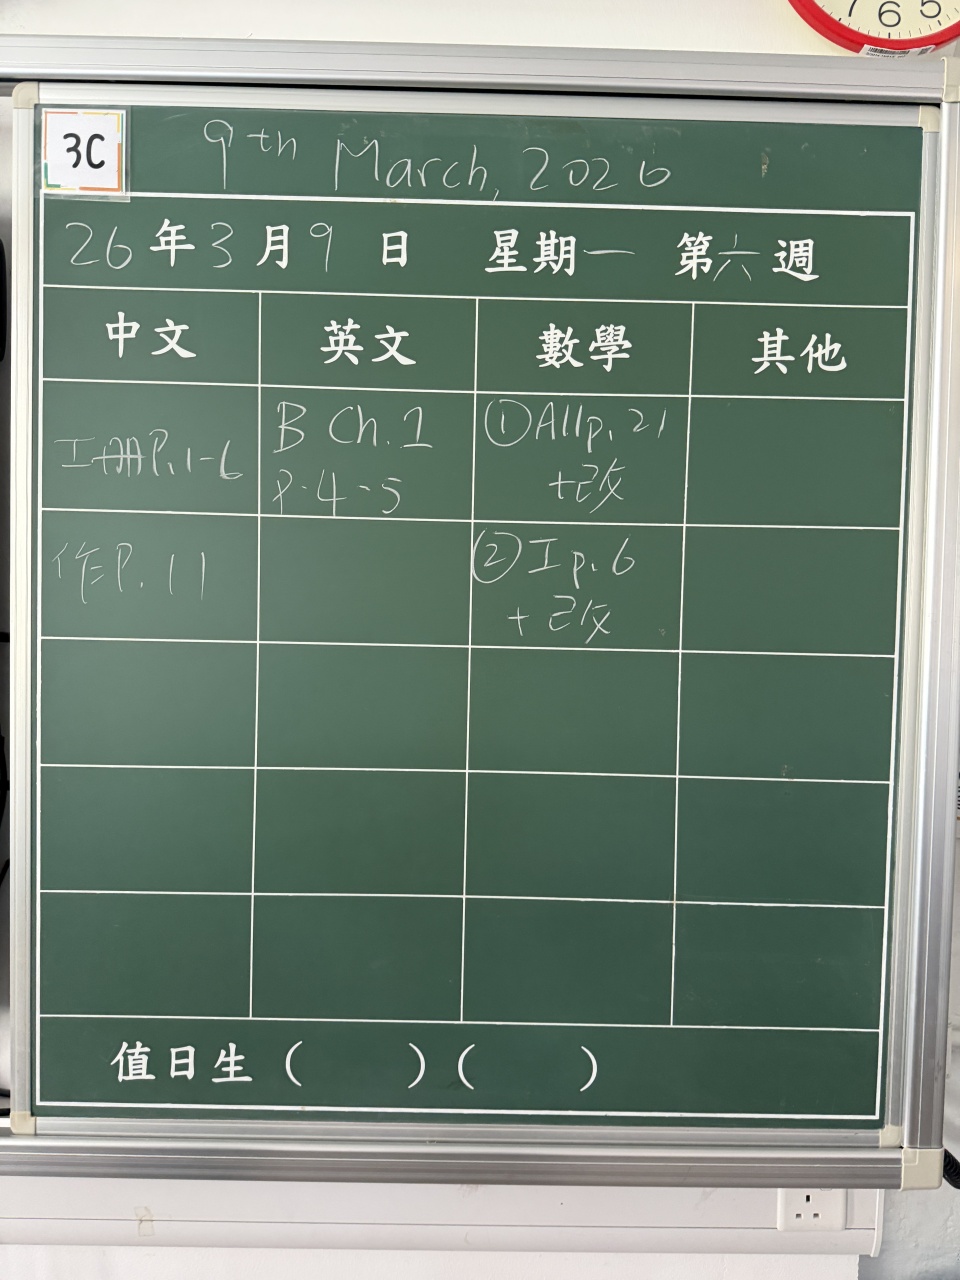 7 6 5
3C
9th March, 2026
26年3月9日 星期一 第六週
中文 英文 數學 其他
工冊P.1-6
B Ch.1
P.4-5
①Allp.21
+改
作P.11
②工p.6
+改
值日生 ( ) ( )